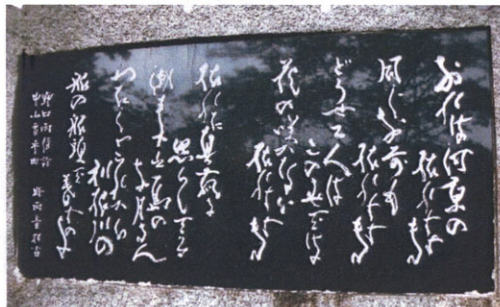 おれは河原の
枯れすすき
同じお前も
枯れすすき
どうせ二人は
この世では
花の咲かない
枯れすすき
枯れた真菰に
照らしてる
潮来出島の
お月さん
わたしはこれから
利根川の
船の船頭で
暮らすのよ
野口雨情詩
中山晋平曲